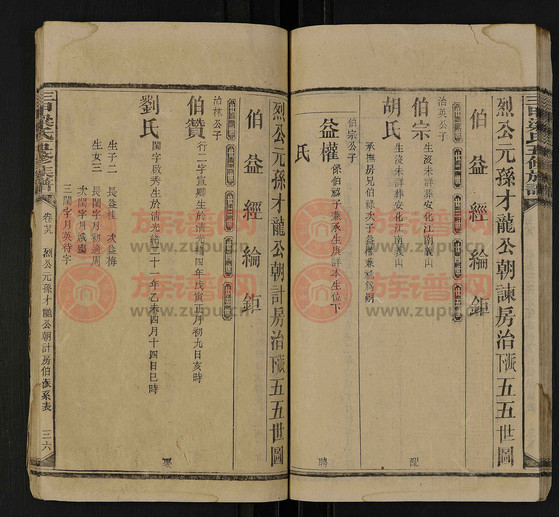 烈公元孫才龍公朝諫房治下派五五世圖
伯 益 經 綸 鉅
治英公子
伯宗
生沒未詳葬安化江南義山
胡氏
生沒未詳葬安化江南義山
承撫房兄伯祿次子益權兼祧為嗣
配
伯宗公子
益權
係伯祿子兼承生庚詳本生位下
氏
聘
烈公元孫才龍公朝計房治下派五五世圖
伯 益 經 綸 鉅
治林公子
伯贊
行二字宣卿生於清光緒四年戊寅月初九日亥時
劉氏
閨字啟秀生於清光緒二十一年乙未四月十四日巳時
配
生子二 長益桂 次益梅
生女三 長閨字月初適周
次閨字月成適
三閨字月英待字
三甲梁氏五修族譜
卷廿九 烈公元孫才龍公朝計房伯派系表 三六
族谱网
www.zupu.cn